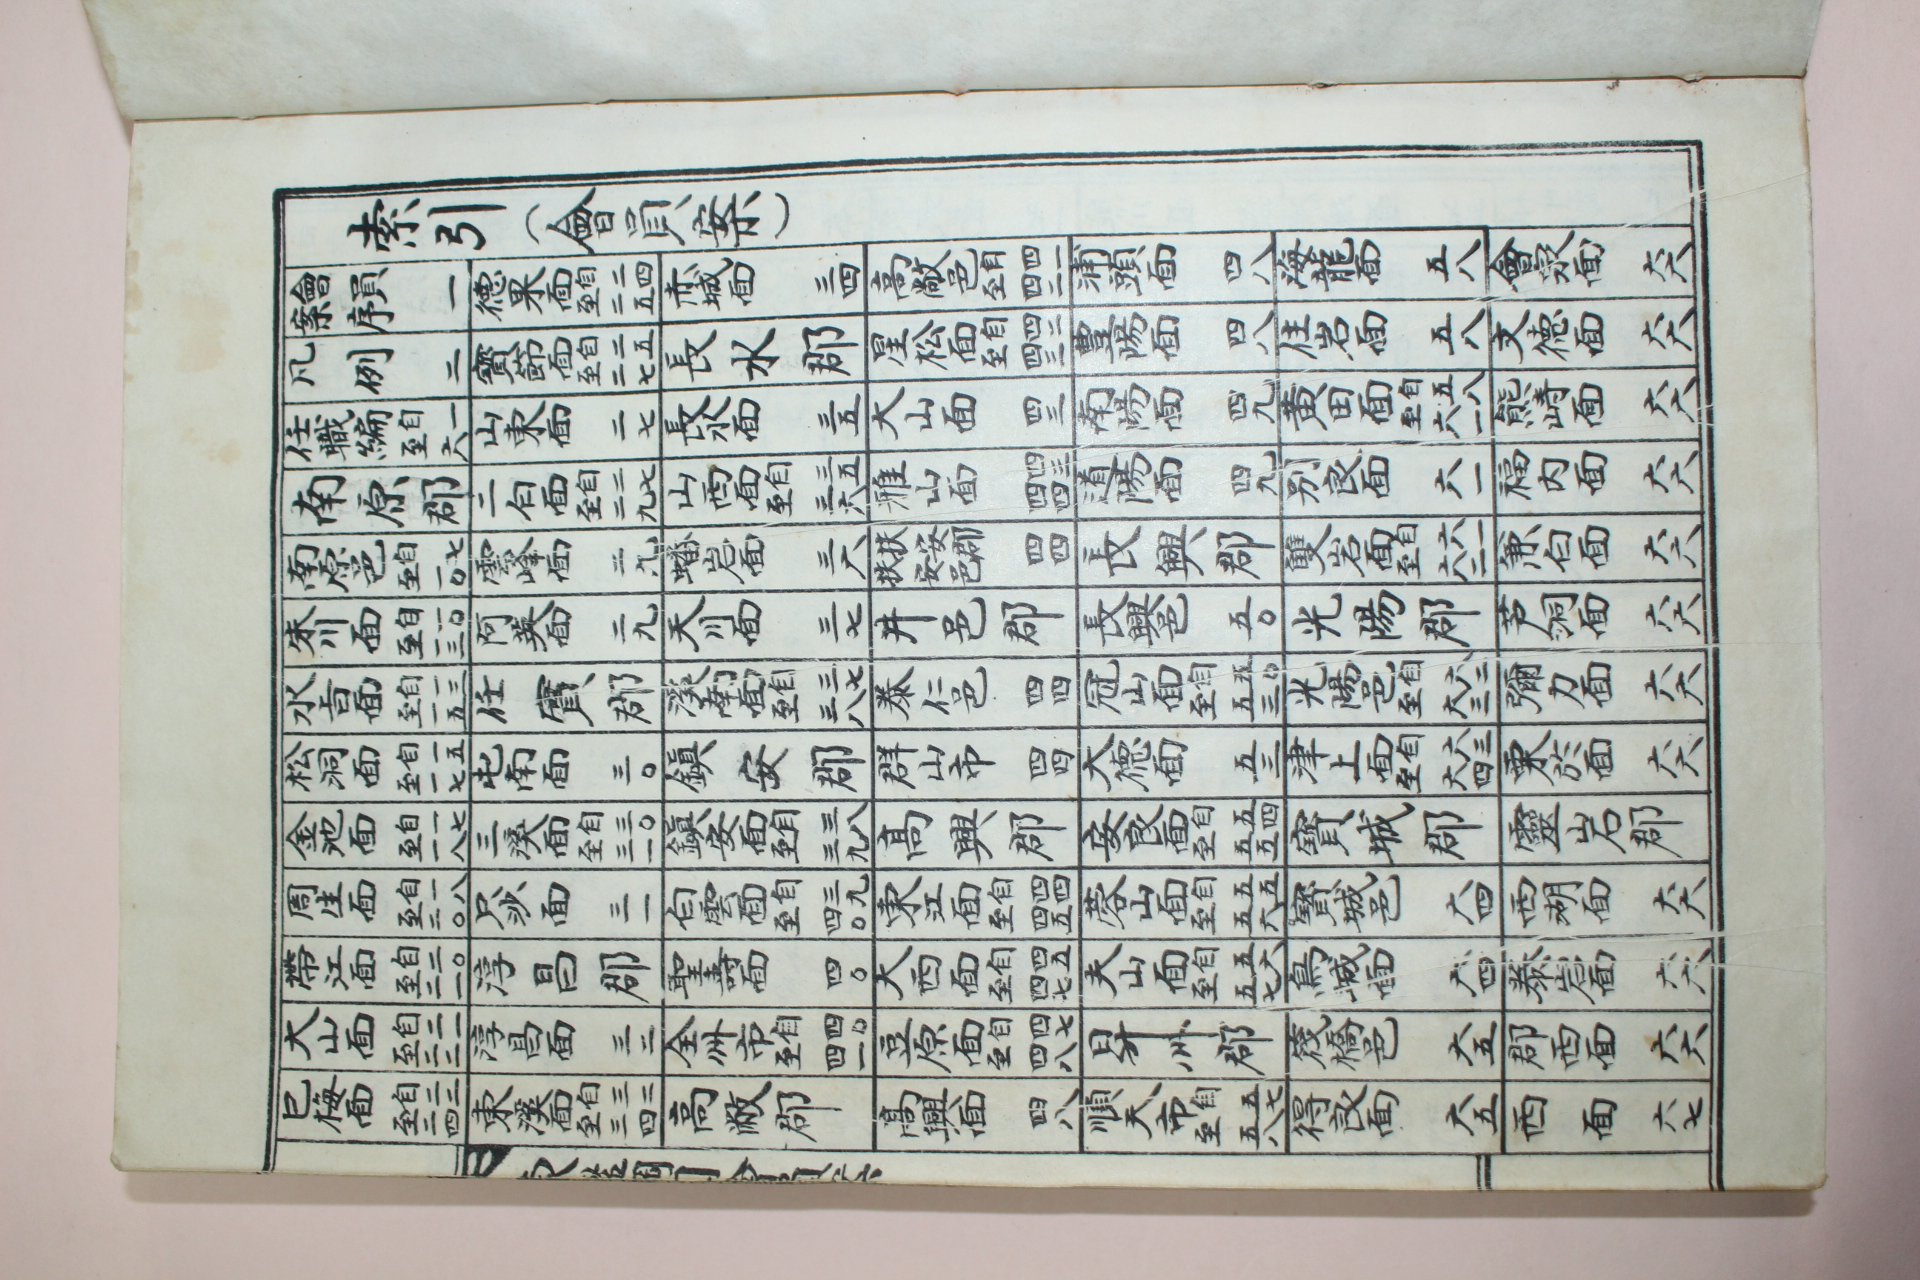 索引(會員案)
會員案序 一
凡例 二
任職編 自一至六
南原郡
南原邑 自七至一〇
朱川面 自一〇至一三
水旨面 自一三至一五
松洞面 自一五至一七
金池面 自一七至一八
周生面 自一八至二〇
帶江面 自二〇至二一
大山面 自二一至二三
巳梅面 自二三至二四
德果面 自二四至二五
寶節面 自二五至二七
山東面 二七
二白面 自二七至二九
雲峰面 二九
阿英面 二九
任實郡
屯南面 三〇
三溪面 自三〇至三一
只沙面 三一
淳昌郡
淳昌面 三二
東溪面 自三三至三四
赤城面 三四
長水郡
長水面 三五
山西面 自三五至三六
蟠岩面 三六
天川面 三七
溪南面 自三七至三八
鎭安郡
鎭安面 自三八至三九
白雲面 自三九至四〇
聖壽面 四〇
全州市 自四〇至四一
高敞郡
高敞邑 自四一至四二
星松面 自四二至四三
大山面 四三
雅山面 自四三至四四
扶安郡扶安邑 四四
井邑郡
泰仁邑 四四
群山市 四四
高興郡
東江面 自四四至四五
大西面 自四五至四七
豆原面 自四七至四八
高興面 四八
蒲頭面 四八
豊陽面 四八
南陽面 四九
道陽面 四九
長興郡
長興邑 五〇
冠山面 自五〇至五三
大德面 五三
安良面 自五四至五五
蓉山面 自五五至五六
夫山面 自五六至五七
昇州郡
順天市 自五七至五八
海龍面 五八
住岩面 五八
黃田面 自五八至六一
別良面 六一
雙岩面 自六一至六二
光陽郡
光陽邑 自六二至六三
津上面 自六三至六四
寶城郡
寶城邑 六四
鳥城面 六四
筏橋邑 六五
得良面 六五
會泉面 六六
文德面 六六
熊峙面 六六
福內面 六六
兼白面 六六
芦洞面 六六
彌力面 六六
栗於面 六六
靈岩郡
西湖面 六六
岩面 六六
郡西面 六六
西面 六七